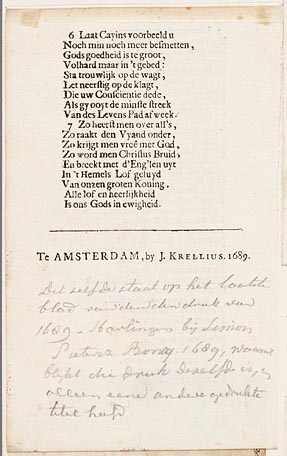 6 Laat Cayins voorbeeld u
Noch min noch meer besmetten,
Gods goedheid is te groot,
Volhard maar in 't gebed:
Sta trouwlijk op de wagt,
Let neerstig op de klagt,
Die uw Conscientie dede,
Als gy ooyt de minste streek
Van des Levens Pad afweek.
7 Zo heerst men over all's,
Zo raakt den Vyand onder,
Zo krijgt men vreê met God,
Zo word men Christus Bruid,
En breekt met d'Eng'len uyt
In 't Hemels Lof geluyd
Van onzen groten Koning,
Alle lof en heerlijkheid
Is ons Gods in ewigheid.
Te AMSTERDAM, by J. KRELLIUS. 1689.
Dit zelfde staat op het laatste
blad van den druk van
1689 - Harlingen bij Simon
Pietersz 1689, waaruit
blijkt die druk dezelfde is, en
alleen eene andere gedrukte
titel heeft